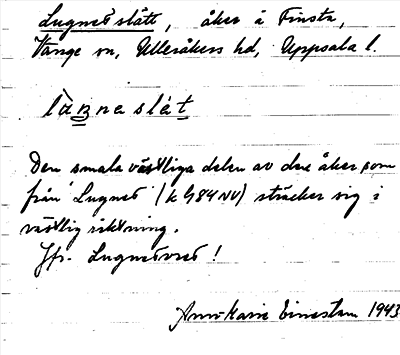 Lugnetslått, åker å Finsta,
Vänge sn, Ulleråkers hd, Uppsala l.
Den smala västliga delen av den åker som
från Lugnet (k G84NV) sträcker sig i
västlig riktning.
Jfr. Lugnetvret !
Ann-Marie Einestam 1943